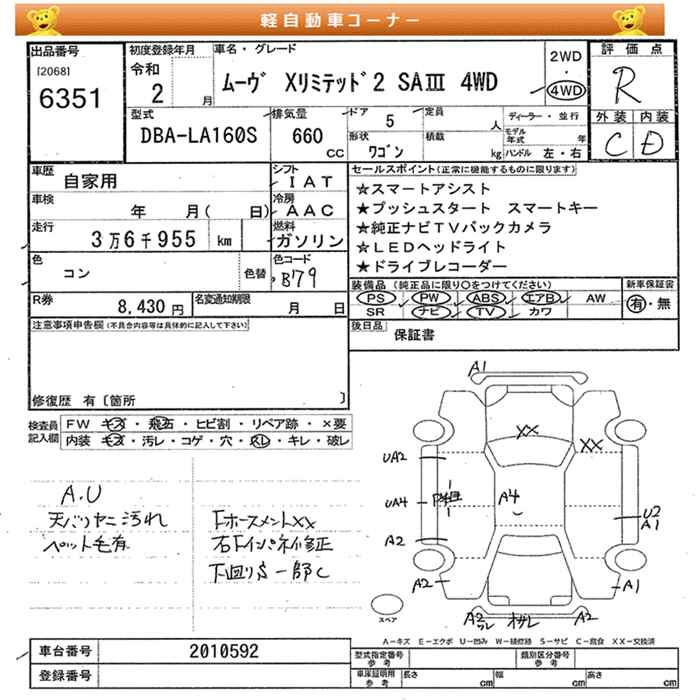 軽自動車コーナー
出品番号
[2068]
6351
初度登録年月
令和
2 月
車名・グレード
ムーヴ Xリミテッド2 SAⅢ 4WD
2WD
・
4WD
評価点
R
外装 内装
C D
型式
DBA-LA160S
排気量
660
CC
ドア
5
形状
ワゴン
定員
人
積載
kg
ディーラー・並行
モデル年式 年
ハンドル 左・右
車歴
自家用
シフト
IAT
車検
年 月( 日)
冷房
AAC
走行
3万6千955 km
燃料
ガソリン
色
コン
色替
色コード
B79
R券
8,430円
名変通知期限
月 日
セールスポイント(正常に機能するものに限ります)
☆スマートアシスト
★プッシュスタート スマートキー
★純正ナビTVバックカメラ
☆LEDヘッドライト
★ドライブレコーダー
装備品 (純正品に限り○をつけてください)
PS PW ABS エアB AW
SR ナビ TV カワ
新車保証書
有・無
後日品
保証書
注意事項申告欄(不具合内容等は具体的に記入して下さい)
修復歴 有〔箇所 〕
検査員記入欄
FW キズ・飛石・ヒビ割・リペア跡・×要
内装 キズ・汚レ・コゲ・穴・スレ・キレ・破レ
A.U
天バリヤニ汚れ
ペット毛有
下ホースメントXX
右下インパネ補修正
下回りS一部C
A1
XX
XX
UA2
UA4
A4
U2
A1
A2
A2
A1
A2
A2
スペア
A-キズ E-エクボ U-凹み W-補修跡 S-サビ C-腐食 XX-交換済
車台番号
2010592
登録番号
型式指定番号
参考
類別区分番号
参考
車庫証明用
参考
長さ cm
幅 cm
高さ cm